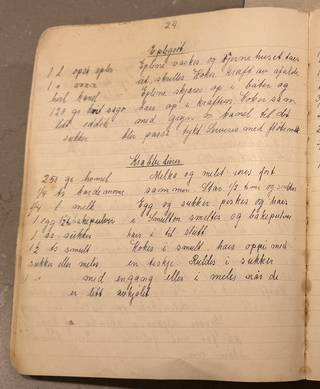 24
Eplegrøt
1 l. opsk. epler
Eplene vaskes og kjernehuset taes
1 " vann
ut, skulles. Koker kraft av
hørl kanel
Eplene skjæres op i båter og
120 gr. sago
haes op i kraften. Koker sam
litt eddik
med gryn og kanel til det
sukker
blir passe tykt. Serveres med fløte
Krabbelurer
250 gr. hvemel
Melke og melet røres fort
1/4 ts. kardemomme
sammen. Står 1/2 time og sveller
l. melk
Egg og sukker piskes og haes
1 egg bakepulver
i. Smulten smeltes og bakepulver
1 ss. sukker
haes i til slutt
1/2 ts. smult
Kokes i smult. haes oppi med
sukker eller melis
en teskje. Rulles i sukker
"
med engang eller i melis når de
er litt avkjølt